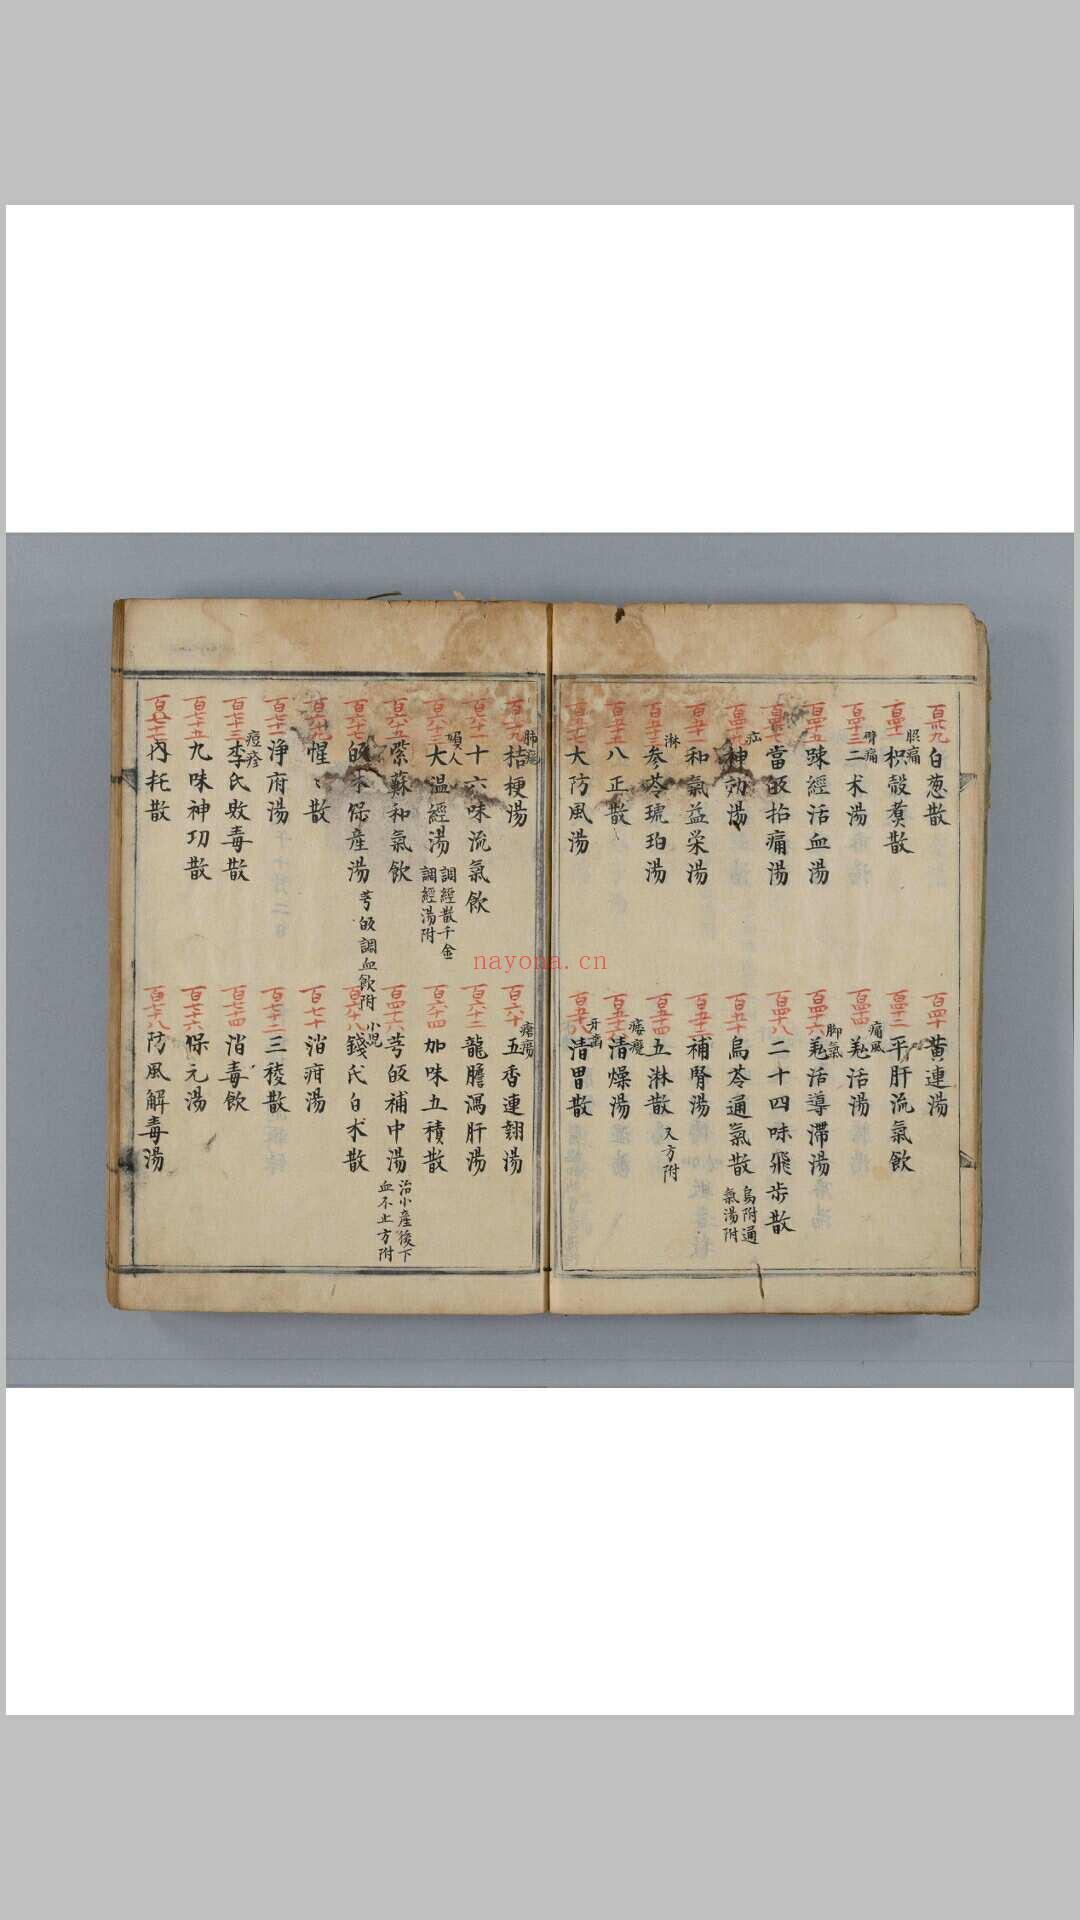 百卅九 白葱散
百四十 黄連湯
百四十一 眼痛 枳殻煑散
百四十二 平肝流氣飲
百四十三 臂痛 二术湯
百四十四 痛風 羗活湯
百四十五 踈經活血湯
百四十六 脚氣 羗活導滯湯
百四十七 當皈拈痛湯
百四十八 二十四味飛歩散
百四十九 疝 神効湯
百五十 烏苓通氣散 烏附通氣湯附
百五十一 和氣益栄湯
百五十二 補腎湯
百五十三 淋 参苓琥珀湯
百五十四 五淋散 又方附
百五十五 八正散
百五十六 痿癈 清燥湯
百五十七 大防風湯
百五十八 牙齒 清胃散
百五十九 肺癰 桔梗湯
百六十 瘡瘍 五香連翹湯
百六十一 十六味流氣飲
百六十二 龍膽瀉肝湯
百六十三 婦人 大温經湯 調經散千金調經湯附
百六十四 加味五積散
百六十五 紫蘇和氣飲
芎皈補中湯 治小産後下血不止方附
百六十七 皈术保産湯 芎皈調血飲附
百六十八 小児 錢氏白术散
百六十九 惺〻散
百七十 消疳湯
百七十一 淨府湯
百七十二 三稜散
百七十三 痘疹 李氏敗毒散
百七十四 消毒飲
百七十五 九味神功散
百七十六 保元湯
百七十七 内托散
百七十八 防風解毒湯
nayona.cn